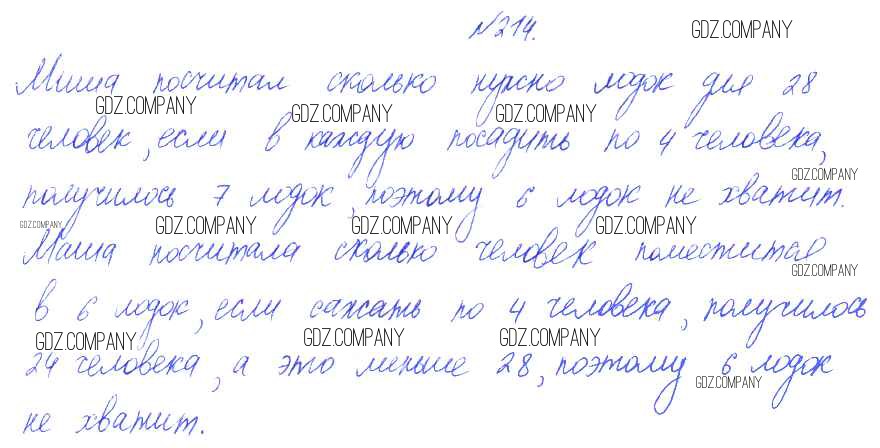 №214. GDZ.COMPANY
Миша посчитал сколько нужно лодок для 28
GDZ.COMPANY GDZ.COMPANY GDZ.COMPANY
человек, если в каждую посадить по 4 человека,
GDZ.COMPANY
получилось 7 лодок, поэтому 6 лодок не хватит.
GDZ.COMPANY GDZ.COMPANY GDZ.COMPANY GDZ.COMPANY
Маша посчитала сколько человек поместится
GDZ.COMPANY
в 6 лодок, если сажать по 4 человека, получилось
GDZ.COMPANY GDZ.COMPANY GDZ.COMPANY
24 человека, а это меньше 28, поэтому 6 лодок
GDZ.COMPANY
не хватит.